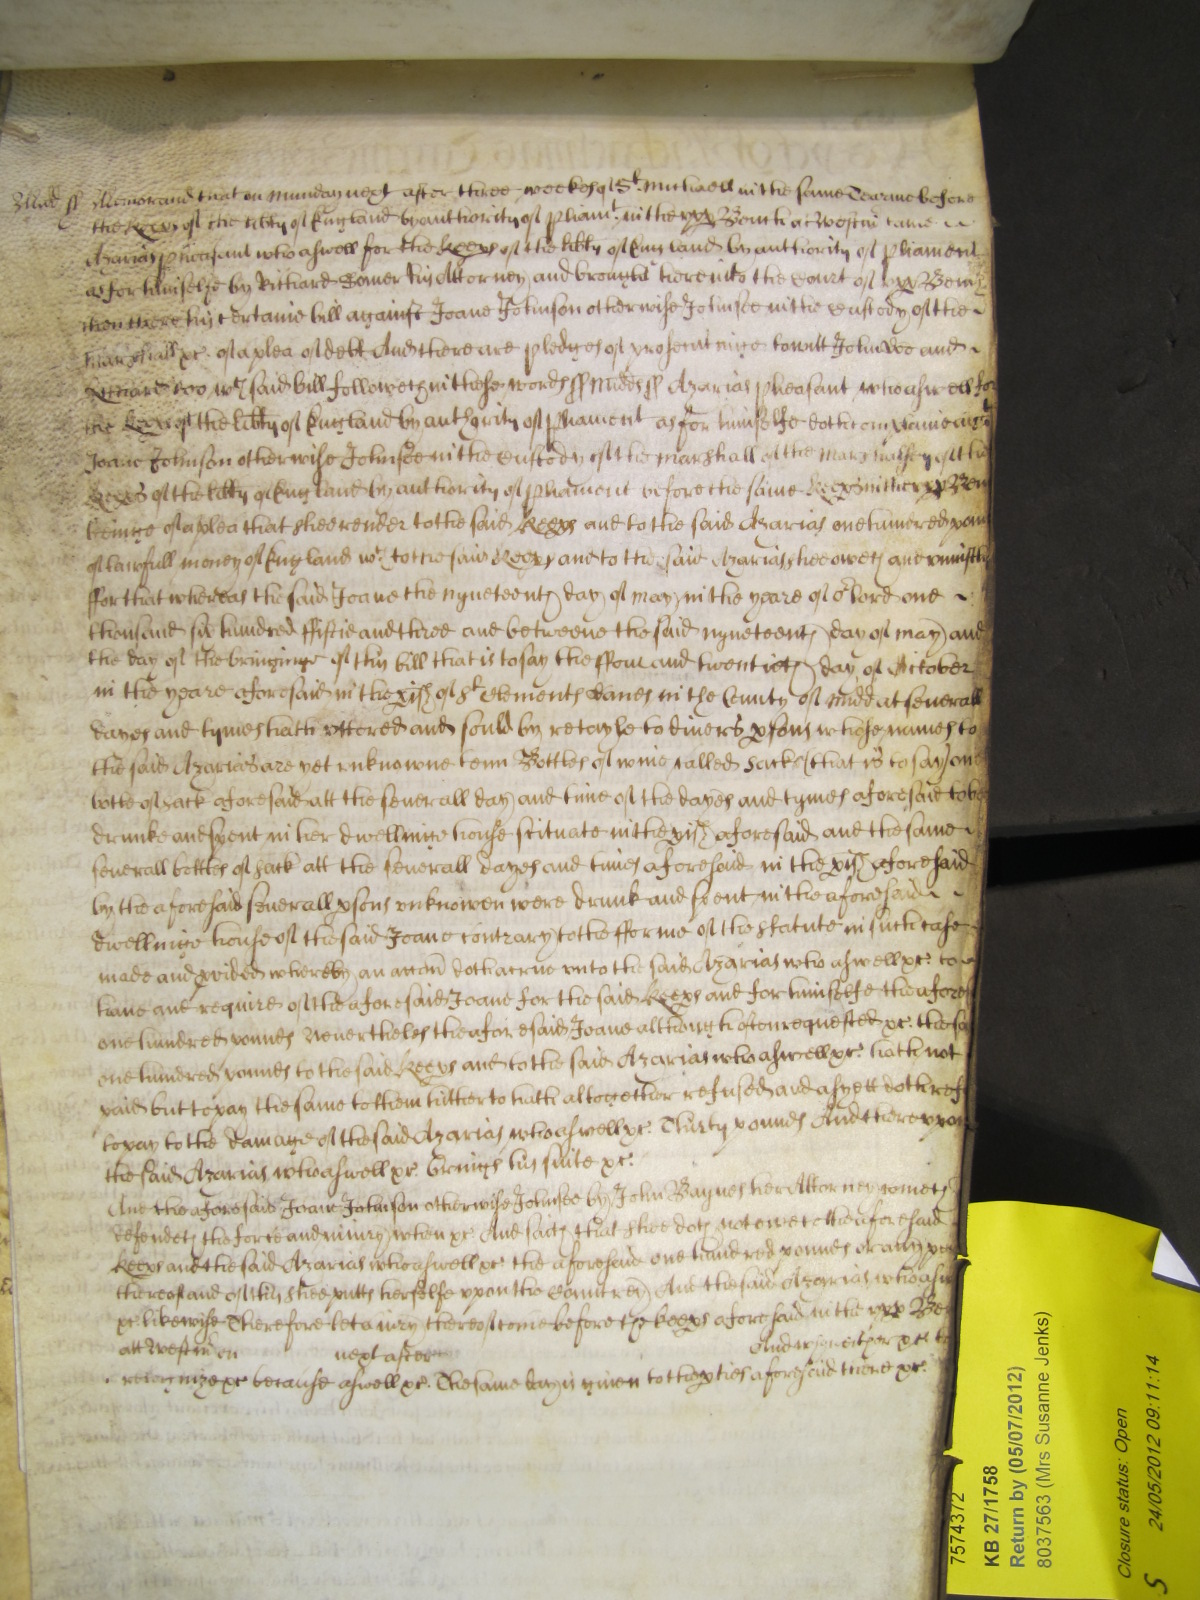 Midd ss Memorand that on Munday next after three weekes of St. Michaell in the same Tearme before
the Keeps of the libty of England by authority of Pliamt. in the upp Bench at Westm came
Azarias Pheasant who aswell for the Keeps of the libty of England by authority of Pliament
as for himselfe by Richard Comer his Attorney and brought here into the Court of upp Bench
then there his certaine bill against Joane Johnson otherwise Johnsee in the custody of the
marshall &c. of a plea of debt And there are pledges of prosecutinge towitt John Doe and
Richard Roo wch said bill followeth in these words ss Midds ss Azarias Pheasant who aswell for
the Keeps of the libty of England by authority of Pliament as for himselfe doth complaine against
Joane Johnson otherwise Johnsee in the custody of the marshall of the Marshalsey of the
Keeps of the libty of England by authority of Pliament before the same Keeps in the upp Ben
beinge of a plea that shee render to the said Keeps and to the said Azarias one hundred poun
of lawfull money of England wch to the said Keeps and to the said Azarias shee oweth and uniustly
ffor that whereas the said Joane the nyneteenth day of may in the yeare of or Lord one
thousand six hundred fiftie and three and betweene the said nyneteenth day of may and
the day of the bringinge of this bill that is to say the ffour and twentieth day of October
in the yeare aforesaid in the pish of St Clements Danes in the County of Midd at severall
dayes and tymes hath uttered and sould by retayle to divers psons whose names to
the said Azarias are yet unknowne tenn Bottles of wine called Sack (that is to say) one
botle of sack aforesaid att the severall day and time of the dayes and tymes aforesaid to be
drunke and spent in her dwellinge house scituate in the pish aforesaid and the same
severall bottles of sack att the severall dayes and times aforesaid in the pish aforesaid
by the aforesaid severall psons unknowen were drunk and spent in the aforesaid
dwellinge house of the said Joane contrary to the fforme of the statute in such case
made and pvided whereby an accon doth acrue unto the said Azarias who aswell &c. to
have and require of the aforesaid Joane for the said Keeps and for himselfe the afores
one hundred pounds Neverthelés the aforesaid Joane although often requested &c. the sa
one hundred pounds to the said Keeps and to the said Azarias who aswell &c. hath not
paid but to pay the same to them hitherto hath altogether refused and as yett doth ref
to pay to the damage of the said Azarias who aswell &c. Thirty pounds And thereupon
the said Azarias who aswell &c. brings his suite &c.
And the aforesaid Joane Johnson otherwise Johnsee by John Baynes her Attorney cometh
defendeth the force and iniury when &c. And saith that shee doth not owe to the aforesaid
Keeps and the said Azarias who aswell &c. the aforesaid one hundred pounds or any pt
thereof and of this shee putts herselfe upon the Countrey And the said Azarias who asw
&c. likewise Therefore let a iury thereof come before the keeps aforesaid in the upp Ben
att Westm on next after And who neither &c. to
recognize &c because aswell &c. The same day is given to the pties aforesaid there &c.
7574372
KB 27/1758
Return by (05/07/2012)
8037563 (Mrs Susanne Jenks)
Closure status: Open
24/05/2012 09:11:14
S